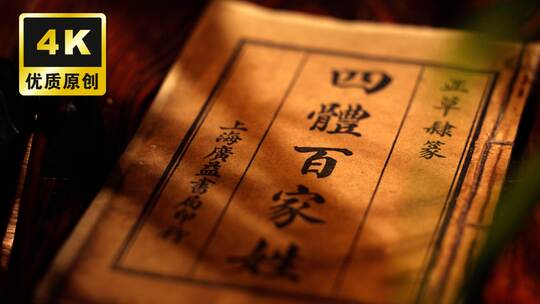 4K
优质原创
正草隸篆
四體百家姓
上海廣益書局印行